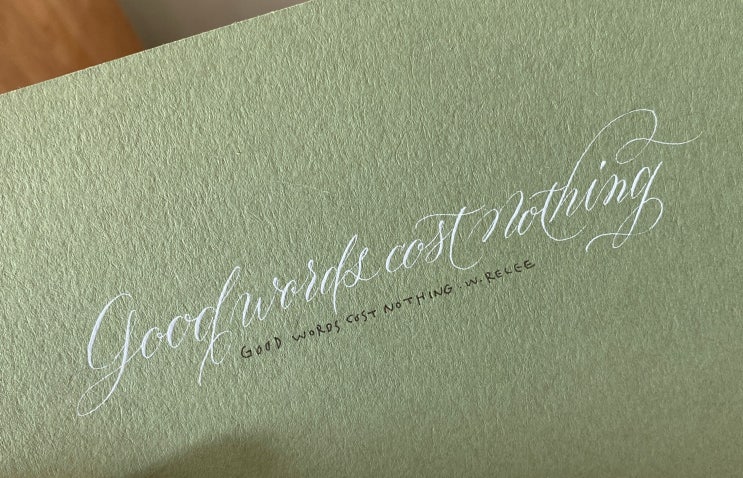 Good words cost nothing
GOOD WORDS COST NOTHING. W. RELEE